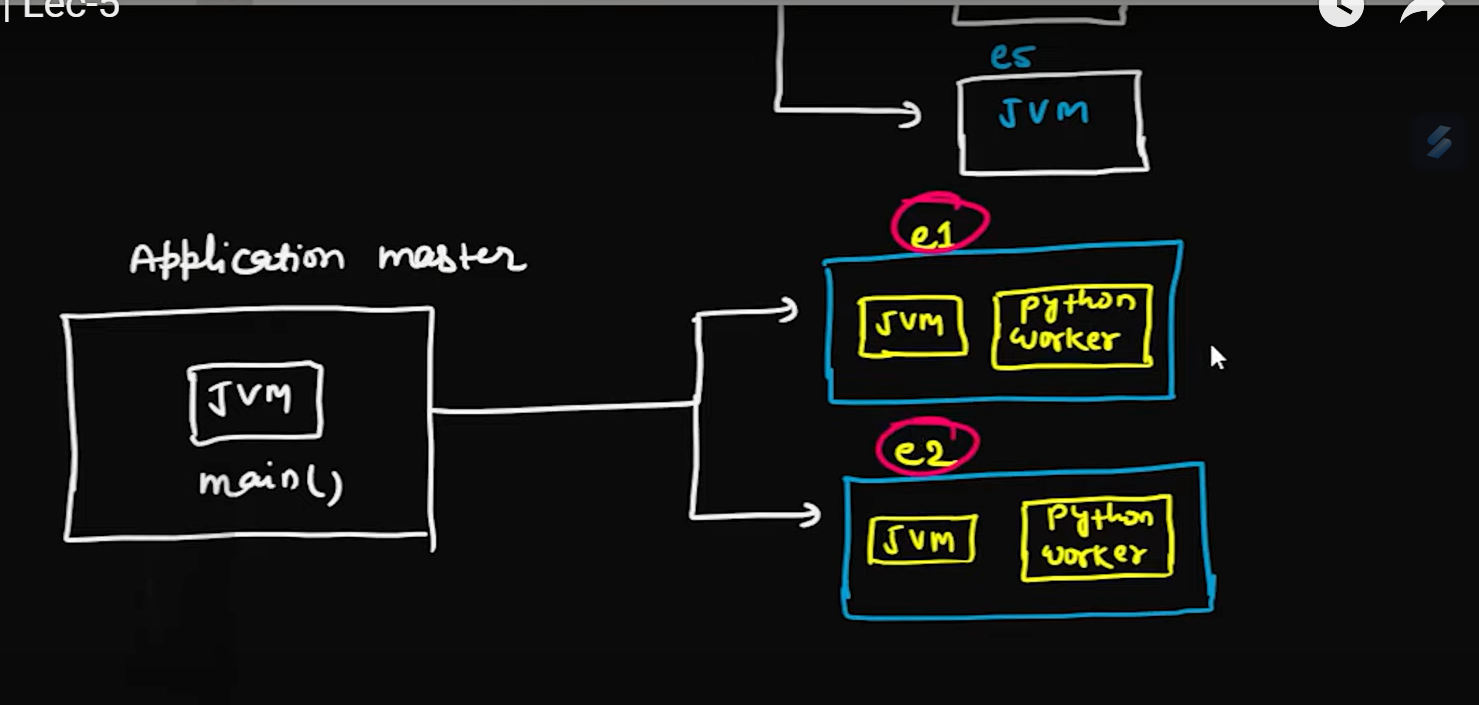 | Lec-5
e5
JVM
Application master
JVM
main()
e1
JVM
python
worker
e2
JVM
python
worker